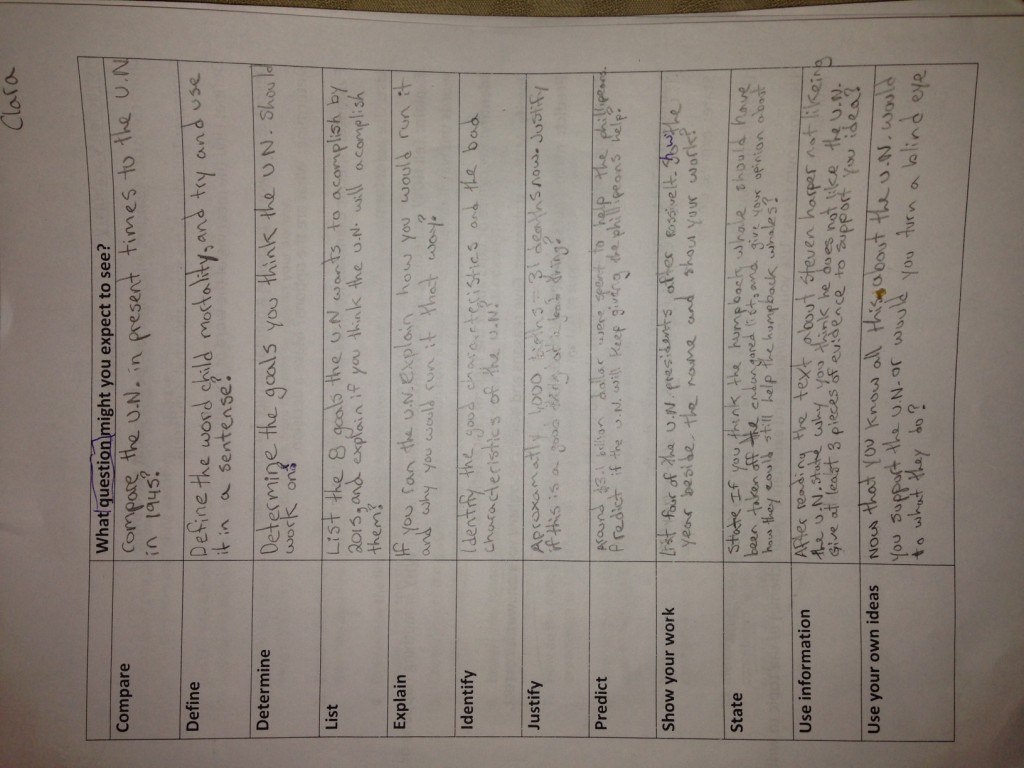 Clara
What question might you expect to see?
Compare
Compare the U.N. in present times to the U.N
in 1945?
Define
Define the word child motality, and try and use
it in a sentense?
Determine
Determine the goals you think the U.N. should
work on?
List
List the 8 goals the U.N wants to acomplish by
2015, and explain if you think the U.N. will acomplish
them?
Explain
If you ran the U.N. Explain how you would run it
and why you would run it that way?
Identify
Identify the good characteristics and the bad
characteristics of the U.N?
Justify
Aproxamatly 1,000 births = 31 deaths now. Justify
if this is a good thing or a bad thing?
Predict
Around $3.1 billion dolar were spent to help the phillipeans.
Predict if the U.N. will keep giving the phillipeans help?
Show your work
List four of the U.N. presidents after Rossivelt. Show the
year beside the name and show your work?
State
State If you think the humpback whale should have
been taken off the endangored list, and give your opinion about
how they could still help the humpback whales?
Use information
After reading the text about Steven harper not likeing
the U.N. state why you think he does not like the U.N.
Give at least 3 pieces of evidence to support you idea?
Use your own ideas
Now that you know all this about the U.N. would
you support the U.N. or would you turn a blind eye
to what they do?